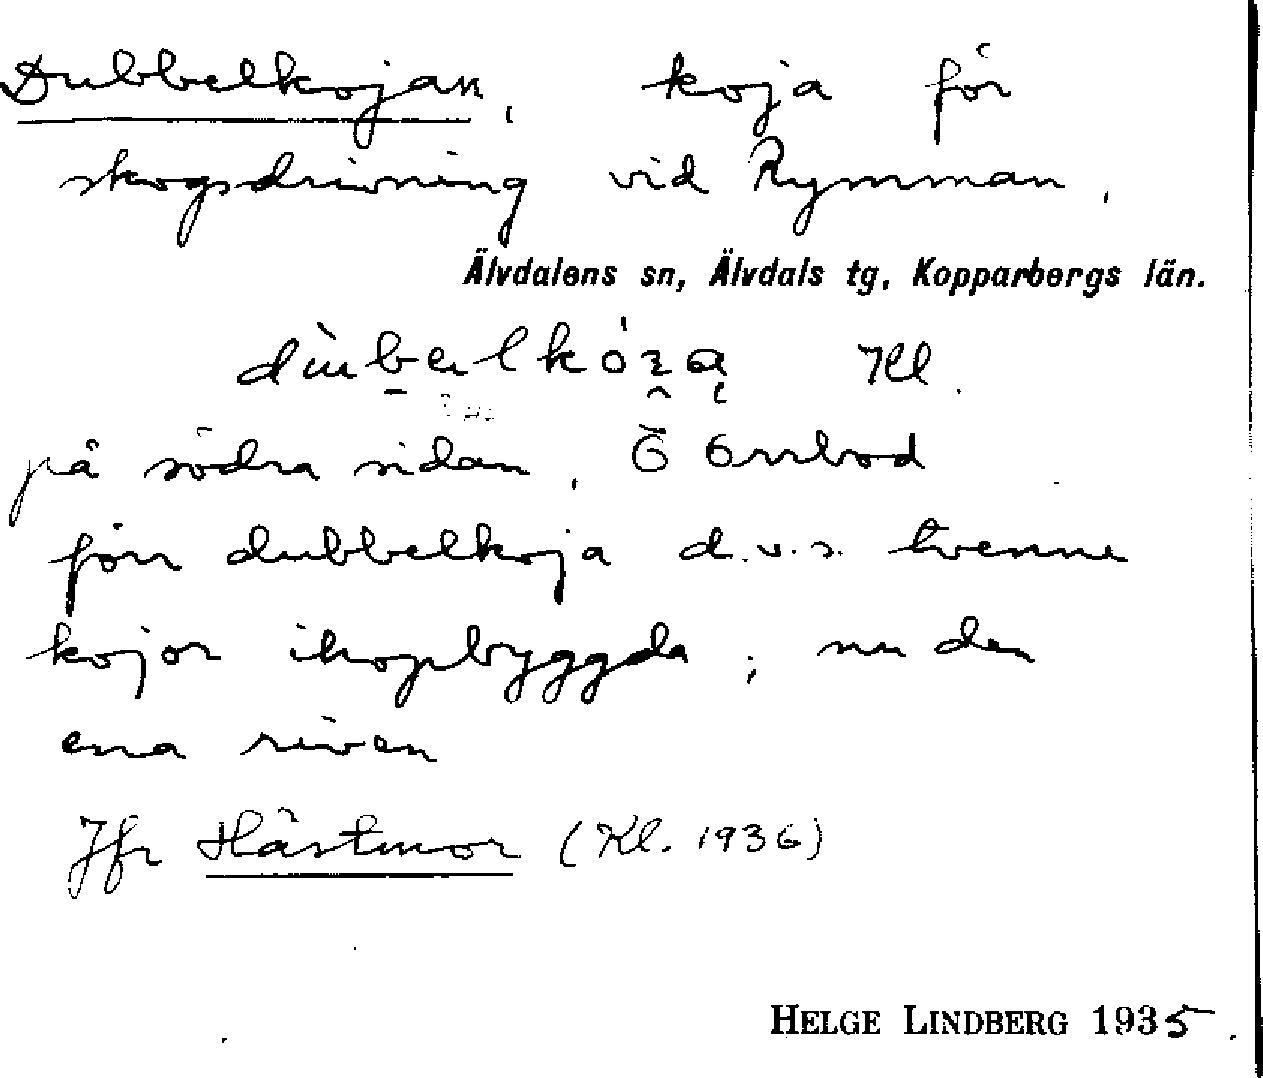 Dubbelkojan, koja för
skogsdrivning vid Rymman.
Älvdalens sn, Älvdals tg, Kopparbergs län.
Kl.
på södra sidan. Ö
förr dubbelkoja d.v.s. tvenne
kojor ihopbyggda; nu den
ena riven
Jfr Hästmor (Kl. 1936)
HELGE LINDBERG 1935.